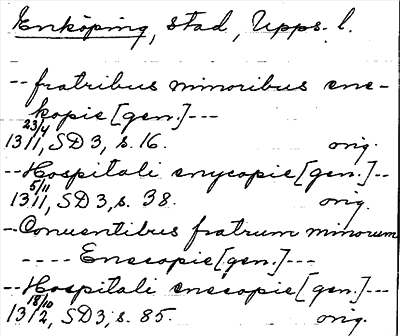 Enköping, stad, Upps. l.
-- fratribus minoribus ene-
kopie [gen.] ---
23/4
1311, SD 3, s. 16. orig.
-- Hospitali enycopie [gen.] --
5/11
1311, SD 3, s. 38. orig.
- Conuentibus fratrum minorum
---- Enecopie [gen.] ---
-- Hospitali enecopie [gen.] ---
18/10
1312, SD 3, s. 85. orig.